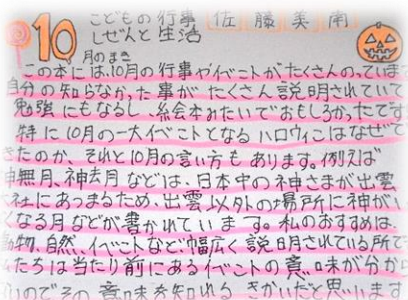 10
こどもの行事
しぜんと生活
佐藤美南
月のまき
この本には、10月の行事やイベントがたくさんのっていま
自分の知らなかった事がたくさん説明されていて
勉強にもなるし、絵本みたいでおもしろかったです
特に10月の一大イベントとなるハロウィンはなぜで
きたのか、それと10月の言い方もあります。例えば
神無月、神去月などは、日本中の神さまが出雲
大社にあつまるため、出雲以外の場所に神がい
なくなる月などが書かれています。私のおすすめは、
動物、自然、イベントなど幅広く説明されている所で
たちは当たり前にあるイベントの意味が分か
いのでその意味を知れるきかいだと思います